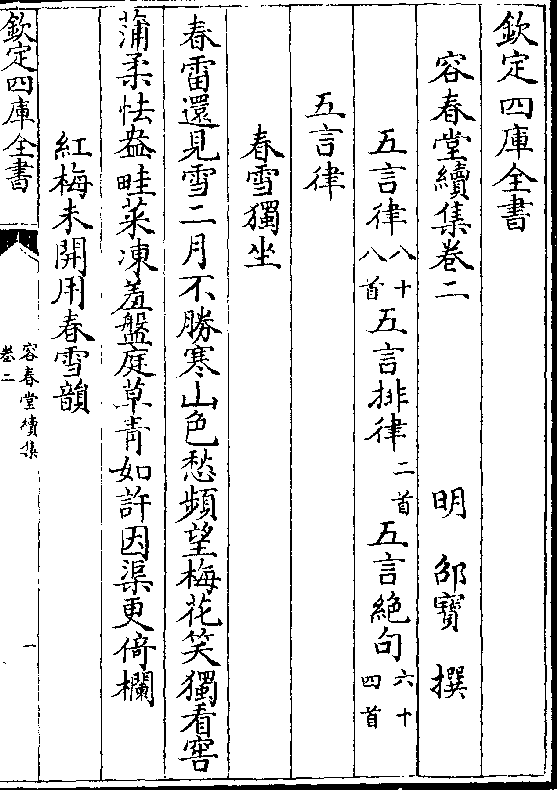 欽定四庫全書
容春堂續集卷二 明 邵寶 撰
五言律八十八首五言排律二首五言絶句六十四首
五言律
春雪獨坐
春雷還見雪二月不勝寒山色愁頻望梅花笑獨看窖
蒲柔怯盎畦菜凍羞盤庭草青如許因渠更倚欄
紅梅未開用春雪韻
欽定四庫全書
容春堂續集
卷二
一